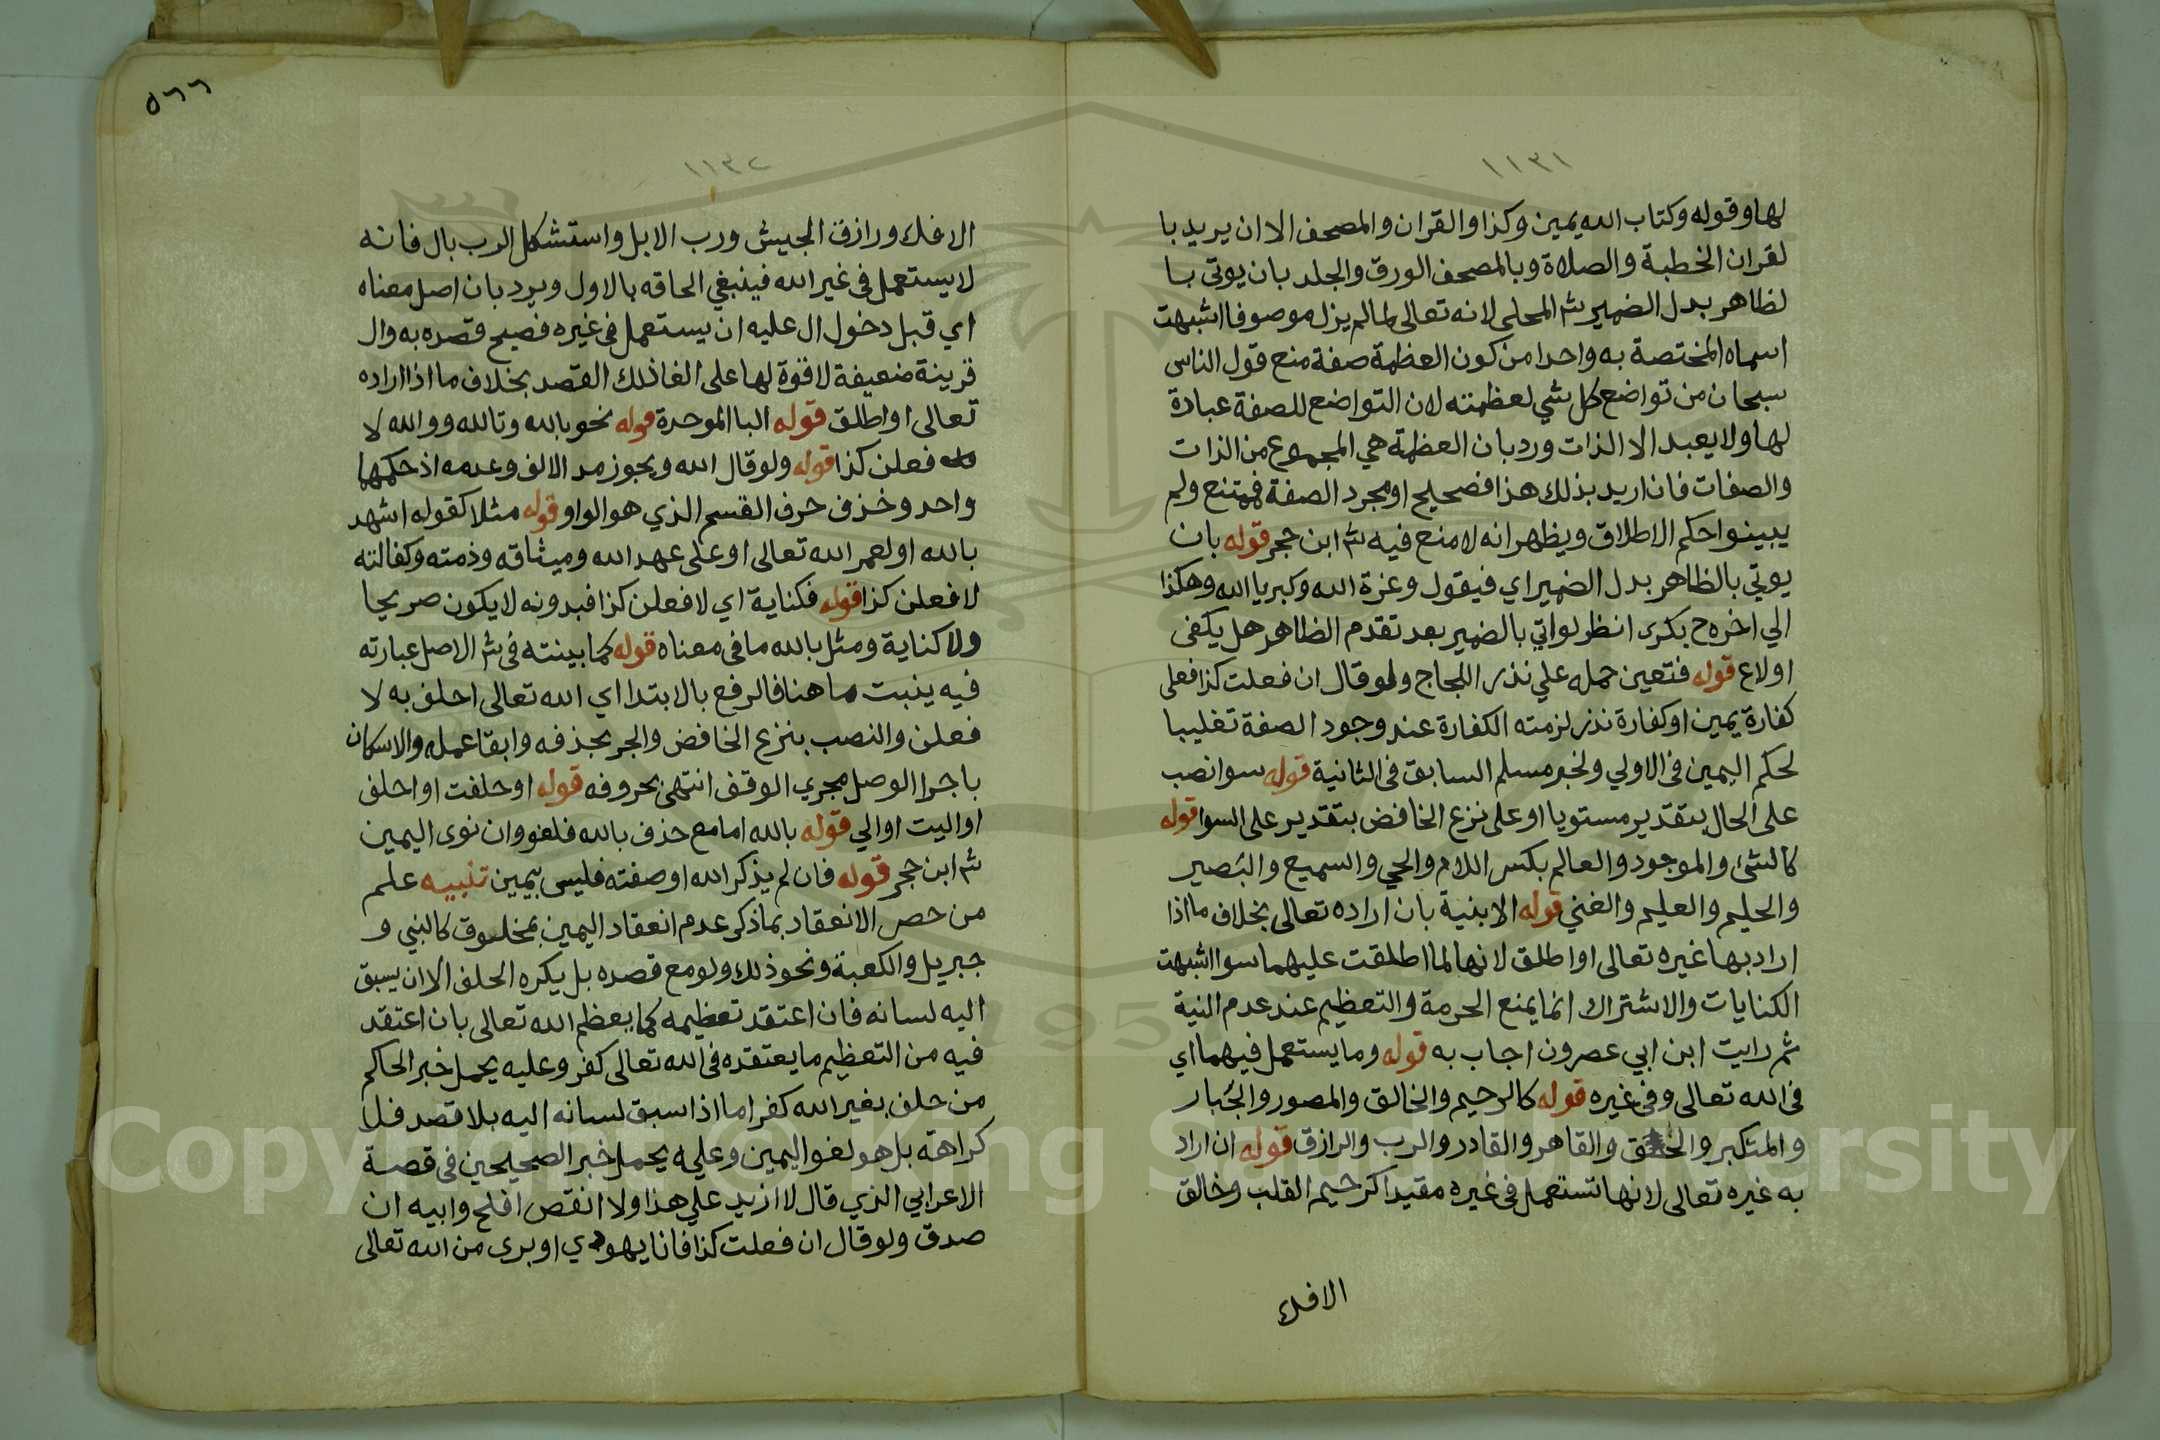 ١١٣١
لها وقوله وكتاب الله يمين وكذا والقران والمصحف الا ان يريد با
لقران الخطبة والصلاة وبالمصحف الورق والجلد بان يوتى با
لظاهر بدل الضمير شم المحلى لانه تعالى لما لم يزل موصوفا اشبهت
اسماه المختصة به واحدا من كون العظمة صفة منع قول الناس
سبحان من تواضع كل شي لعظمته لان التواضع للصفة عبادة
لها ولا يعبد الا الذات ورد بان العظمة هي المجموع من الذات
والصفات فان اريد بذلك هذا فصحيح او مجرد الصفة فممتنع ولم
يبينوا حكم الاطلاق ويظهر انه لا منع فيه شم ابن حجر قوله بان
يوتي بالظاهر بدل الضمير اي فيقول وعزة الله وكبريا الله وهكذا
الي اخره ح بكرى انظر لو اتي بالضمير بعد تقدم الظاهر هل يكفى
او لا ع قوله فتعين حمله علي نذر اللجاج ولو قال ان فعلت كذا فعلى
كفارة يمين او كفارة نذر لزمته الكفارة عند وجود الصفة تغليبا
لحكم اليمين فى الاولي ولخبر مسلم السابق فى الثانية قوله سوا نصب
على الحال بتقدير مستويا او على نزع الخافض بتقدير على السوا قوله
كالشئ والموجود والعالم بكسر اللام والحي والسميع والبصير
والحليم والعليم والغني قوله الا بنية بان اراده تعالى بخلاف ما اذا
اراد بها غيره تعالى او اطلق لانها لما اطلقت عليهما سوا اشبهت
الكنايات والاشتراك انما يمنع الحرمة والتعظيم عند عدم النية
ثم رايت ابن ابي عصرون اجاب به قوله وما يستعمل فيهما اي
فى الله تعالى وفى غيره قوله كالرحيم والخالق والمصور والجبار
والمتكبر والحق والقاهر والقادر والرب والرازق قوله ان اراد
به غيره تعالى لانها تستعمل فى غيره مقيدا كرحيم القلب وخالق
الافك
٥٦٦
١١٣٢
الافك ورازق الجيش ورب الابل واستشكل الرب بال فانه
لا يستعمل فى غير الله فينبغي الحاقه بالاول ويرد بان اصل معناه
اي قبل دخول ال عليه ان يستعمل فى غيره فصح قصده به وال
قرينة ضعيفة لا قوة لها على الغا ذلك القصد بخلاف ما اذا اراده
تعالى او اطلق قوله البا الموحدة قوله نحو بالله وتالله ووالله لا
فعلن كذا قوله ولو قال الله ويجوز مد الالف وعدمه اذ حكمها
واحد وخذف حرف القسم الذي هو الواو قوله مثلا كقوله اشهد
بالله او لعمر الله تعالى او على عهد الله وميثاقه وذمته وكفالته
لا فعلن كذا قوله فكناية اي لا فعلن كذا فبدونه لا يكون صريحا
ولا كناية ومثل بالله ما فى معناه قوله كما بينته فى شم الاصل عبارته
فيه ينبت ما هنا فالرفع بالابتدا اي الله تعالى احلف به لا
فعلن والنصب بنزع الخافض والجر بحذفه وابقا عمله والاسكان
باجرا الوصل مجري الوقف انتهى بحروفه قوله او حلفت او احلف
او اليت او الي قوله بالله اما مع حذف بالله فلغو وان نوى اليمين
شم ابن حجر قوله فان لم يذكر الله او صفته فليس بيمين تنبيه علم
من حصر الانعقاد بما ذكر عدم انعقاد اليمين بمخلوق كالنبي و
جبريل والكعبة ونحو ذلك ولو مع قصده بل يكره الحلف الا ان يسبق
اليه لسانه فان اعتقد تعظيمه كما يعظم الله تعالى بان اعتقد
فيه من التعظيم ما يعتقده فى الله تعالى كفر وعليه يحمل خبر الحاكم
من حلف بغير الله كفر اما اذا سبق لسانه اليه بلا قصد فل
كراهة بل هو لغو اليمين وعليه يحمل خبر الصحيحين فى قصة
الاعرابي الذي قال لا ازيد علي هذا ولا انقص افلح وابيه ان
صدق ولو قال ان فعلت كذا فانا يهودي او برى من الله تعالى
Copyright © King Saud University